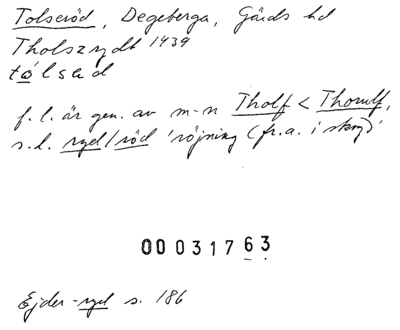 Tolseröd, Degeberga, Gärds hd
Tholszrydt 1439
tålsad
f.l. är gen. av m-n Tholf < Thorulf,
s.l. ryd/röd 'röjning (fr.a. i skog)'
00031763
Ejder-ryd s. 186